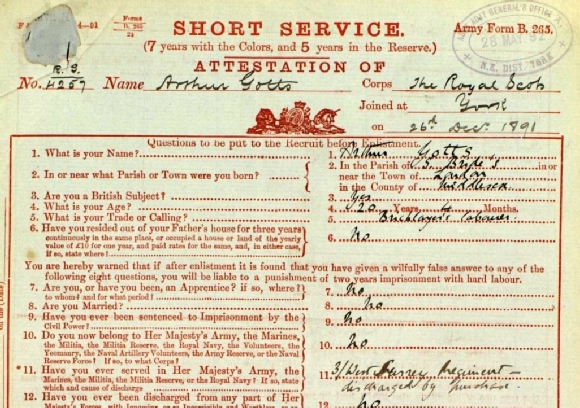 SHORT SERVICE. Army Form B. 265.
(7 years with the Colors, and 5 years in the Reserve.)
ATTESTATION OF
No. R.S. 4257 Name Arthur Gotts Corps The Royal Scots
Joined at York
on 26th Decr 1891
28 MAY 92
N.E. DIST. YORK
Questions to be put to the Recruit before Enlistment.
1. What is your Name? 1. Arthur Gotts
2. In or near what Parish or Town were you born? 2. In the Parish of St. Bride's in or
near the Town of London
in the County of Middlesex
3. Are you a British Subject? 3. Yes
4. What is your Age? 4. 20 Years Months.
5. What is your Trade or Calling? 5. Bricklayer's labourer
6. Have you resided out of your Father's house for three years
continuously in the same place, or occupied a house or land of the yearly
value of £10 for one year, and paid rates for the same, and, in either case,
if so, state where? 6. No
You are hereby warned that if after enlistment it is found that you have given a wilfully false answer to any of the
following eight questions, you will be liable to a punishment of two years imprisonment with hard labour.
7. Are you, or have you been, an Apprentice? if so, where?
to whom? and for what period? 7. No
8. Are you Married? 8. No
9. Have you ever been sentenced to Imprisonment by the
Civil Power? 9. No
10. Do you now belong to Her Majesty's Army, the Marines,
the Militia, the Militia Reserve, the Royal Navy, the Volunteers, the
Yeomanry, the Naval Artillery Volunteers, the Army Reserve, or the Naval
Reserve Force? If so, to what Corps? 10. No
*11. Have you ever served in Her Majesty's Army, the
Marines, the Militia, the Militia Reserve, or the Royal Navy? If so, state
which and cause of discharge 11. 3/West Surrey Regiment -
discharged by purchase
12. Have you ever been discharged from any part of Her 12. No